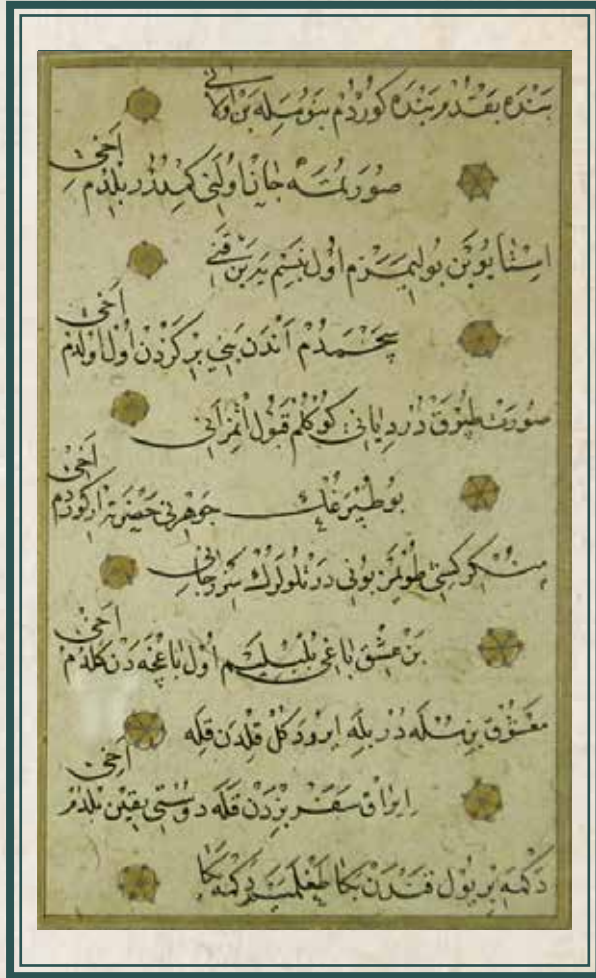 بنده بقدم بنده كوردم بنومله بن اولانی
صورتمه جان اولنی كمدرر بلدم اخی
استایوبن بولیمزم اول بنسم یا بن قنی
سچمدم اندن بنی بر كزدن اول اولدم اخی
صورت طپرق درر دیانی كوكلم قبول اتمز انی
بو طپرغك جوهرنی حضرته ار كوردم اخی
منكر كشی طویمز بونی دردلولرك سزر جانی
بن عشق باغی بلبلیم اول باغچه دن كلدم اخی
معشوق بزمله در بله ایرو دكل قلدن قله
ایراق سفر بزدن قله دوستی یقین بلدم اخی
دكمه بر یول قندن بكا دكمه یكا